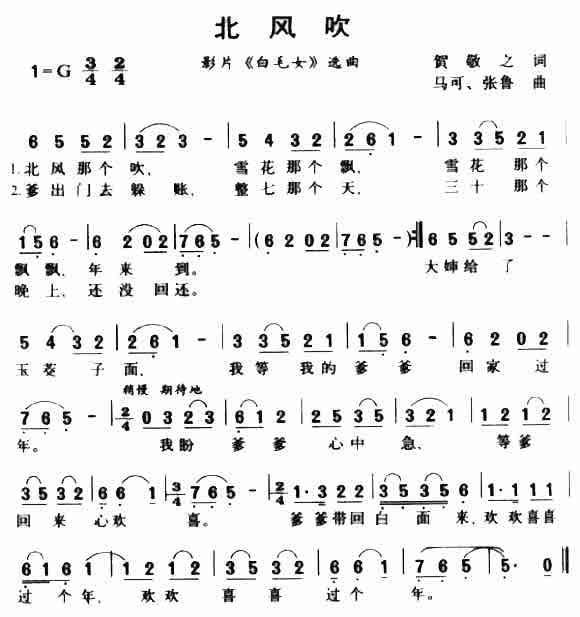 北 风 吹
1=G 3/4 2/4
影片《白毛女》选曲
贺 敬 之 词
马可、张鲁 曲
6 5 52 | 323 - | 5 4 32 | 261 - | 3 35 21 |
1. 北 风 那 个 吹, 雪 花 那 个 飘, 雪 花 那 个
2. 爹 出 门 去 躲 账, 整 七 那 个 天, 三 十 那 个
156 - | 6 202 | 765 - | (6 202 | 765 - :‖ 6 5 52 | 3 - - |
飘 飘, 年 来 到。 大 婶 给 了
晚 上, 还 没 回 还。
5 4 32 | 261 - | 3 35 21 | 156 - | 6 202 |
玉 茭 子 面, 我 等 我 的 爹 爹 回 家 过
稍慢 期待地
765 - | 2/4 03 23 | 6 12 | 35 35 | 321 | 12 12 |
年。 我 盼 爹 爹 心 中 急, 等 爹
35 32 | 6 6 1 | 3/4 765 - | 2/4 1·3 22 | 35 35 | 1·1 11 |
回 来 心 欢 喜。 爹 爹 带 回 白 面 来, 欢 欢 喜 喜
61 6 1 | 12 12 | 35 35 | 61 61 | 5 - | 5· 0 ‖
过 个 年, 欢 欢 喜 喜 过 个 年。